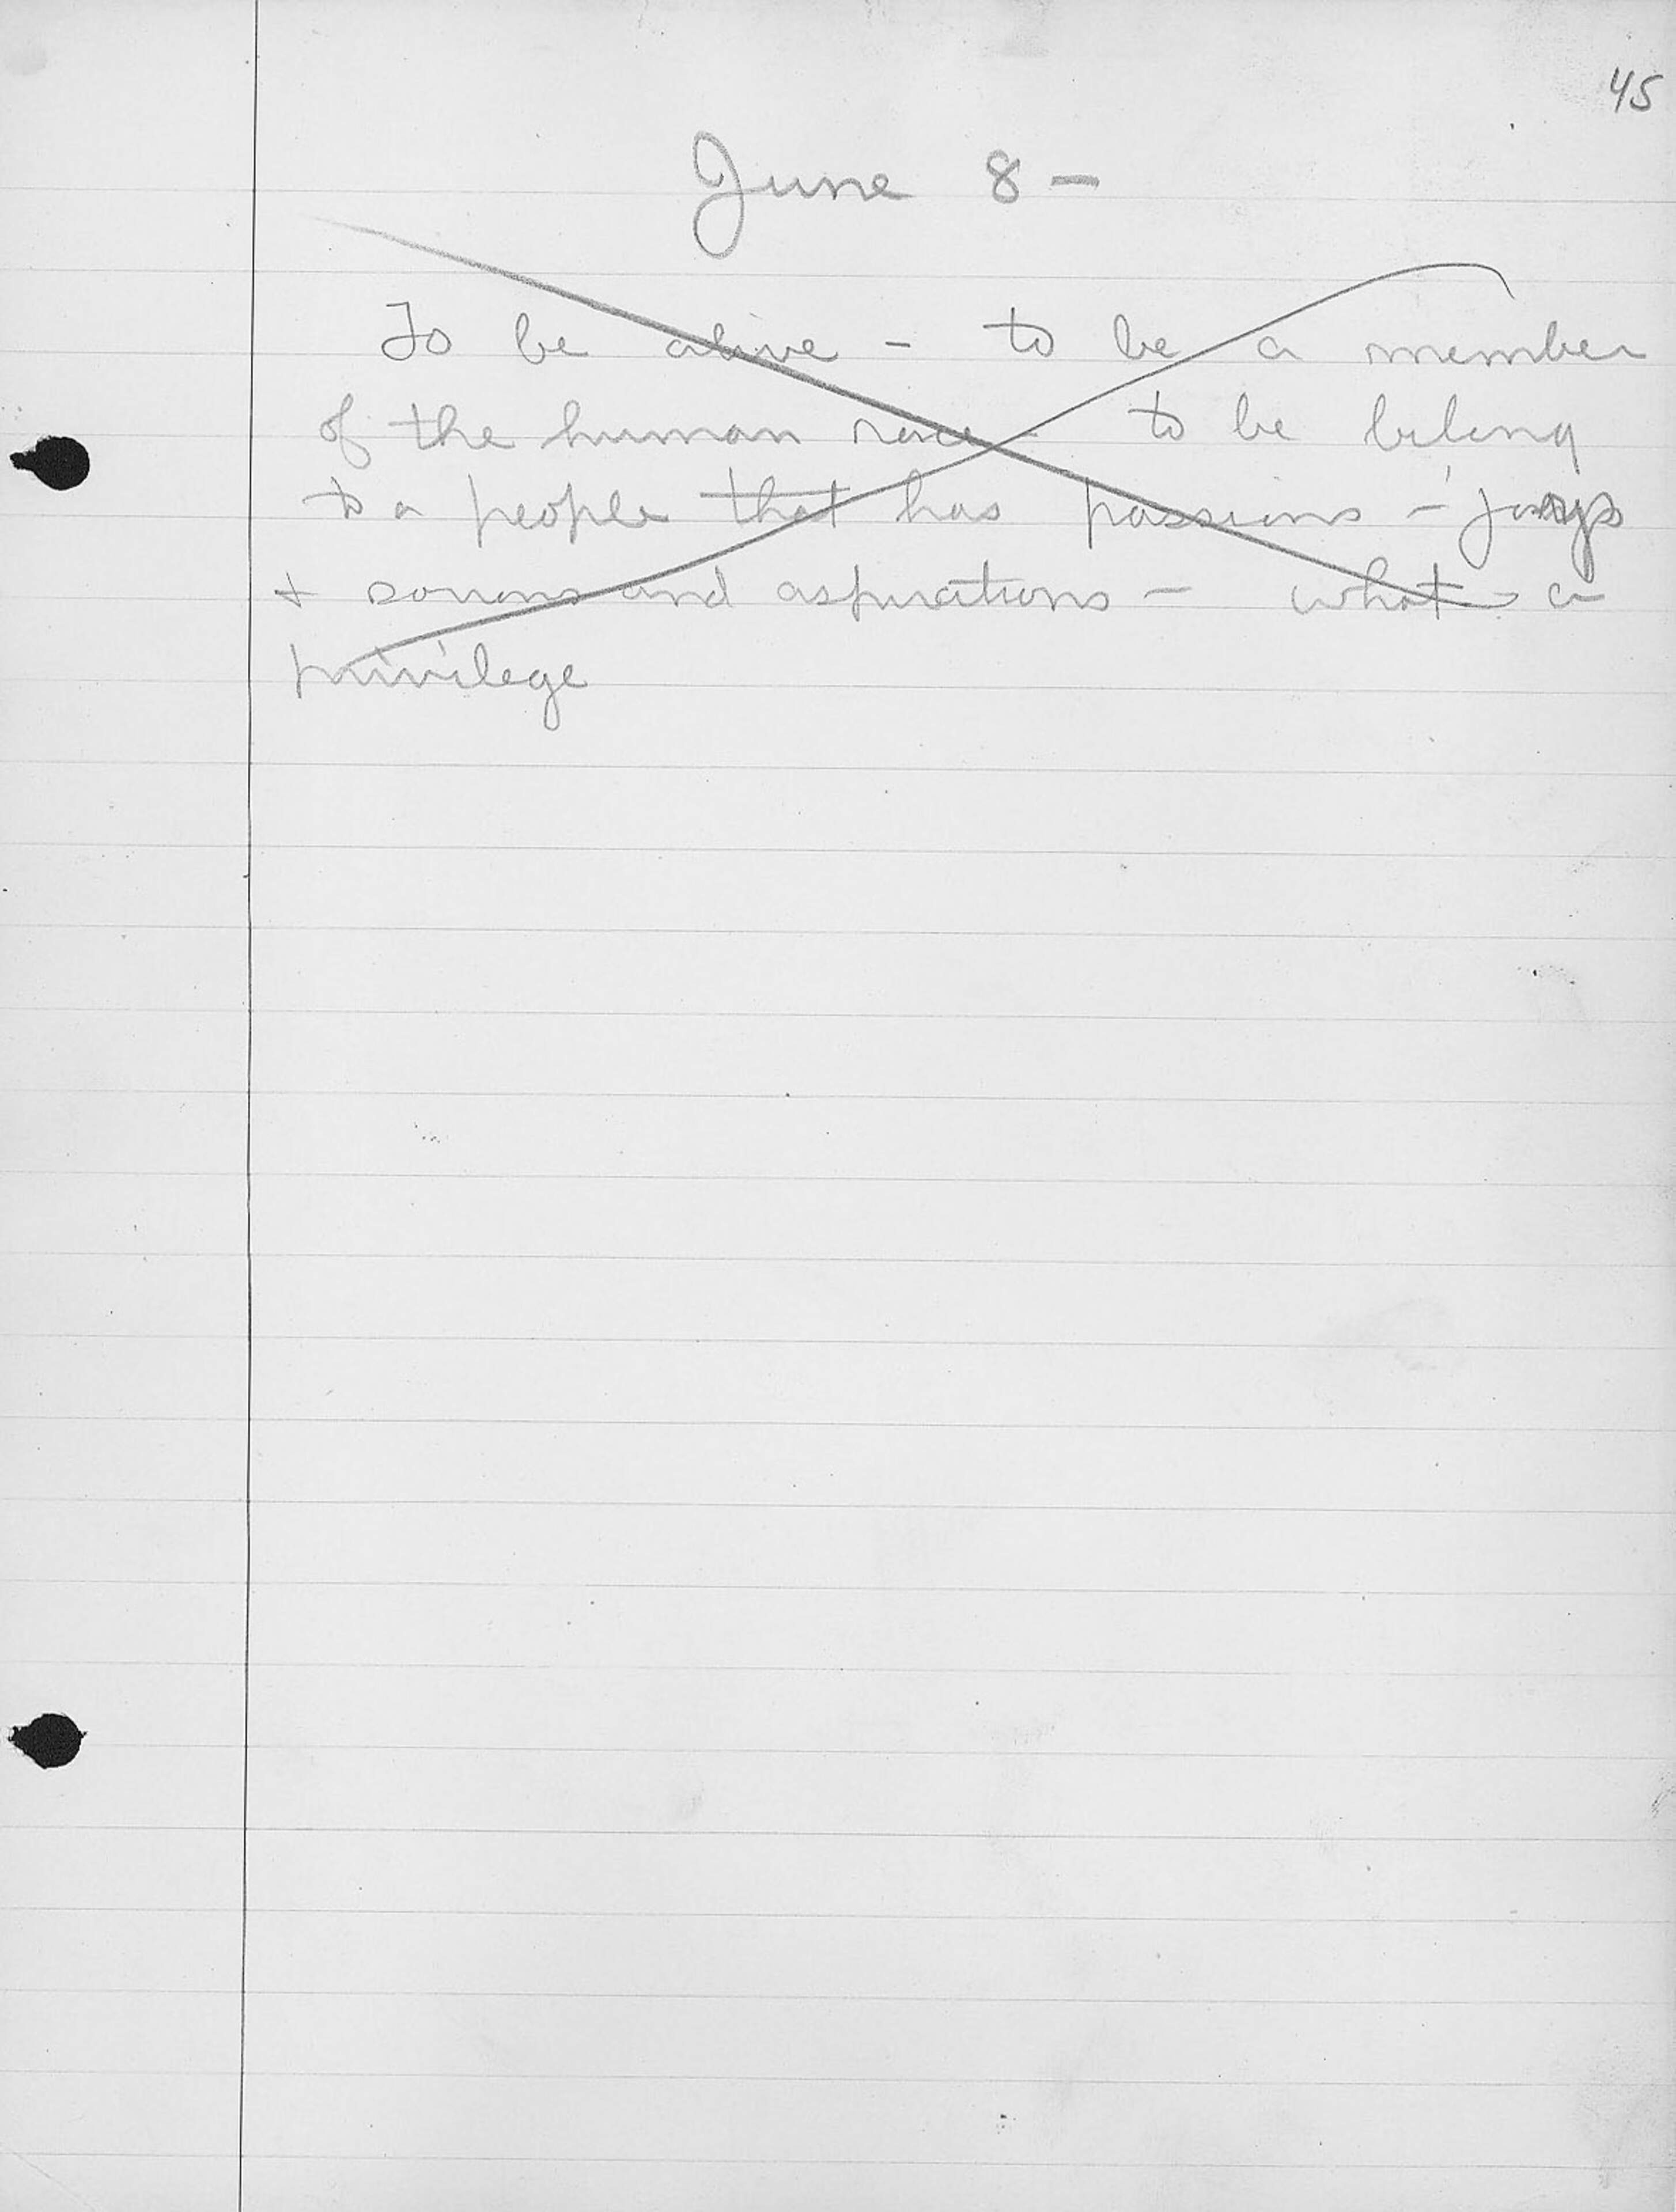 45
June 8 –
To be alive – to be a member
of the human race – to be belong
to a people that has passions – joys
+ sorrows and aspirations – what a
privilege